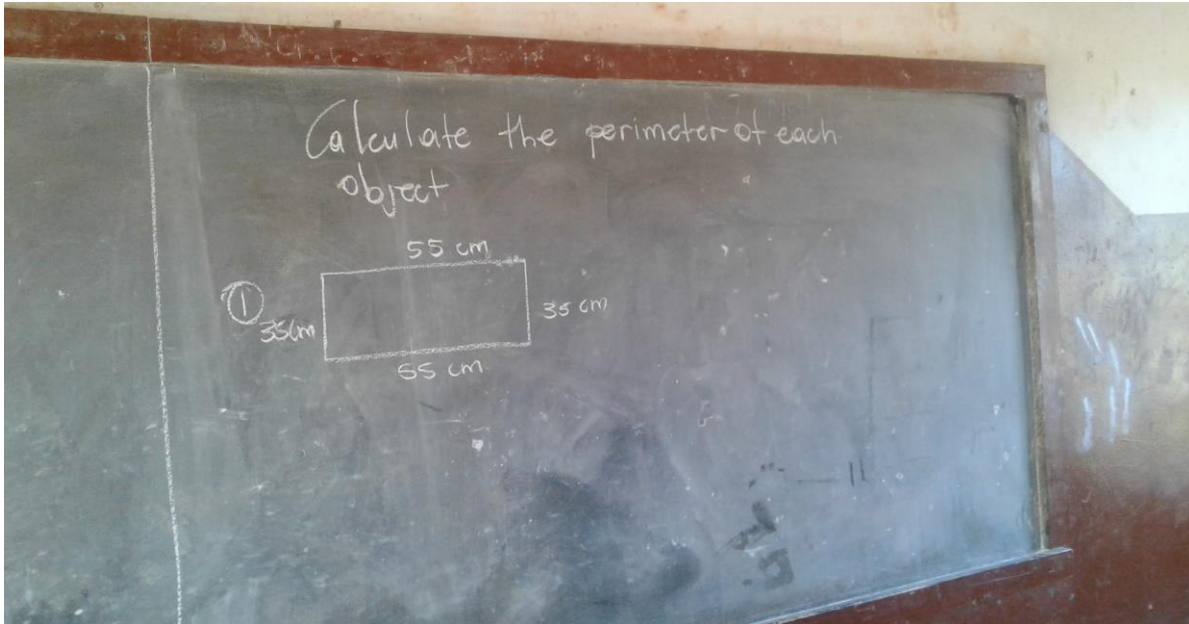 Calculate the perimeter of each
object
55 cm
① 35cm 35 cm
55 cm